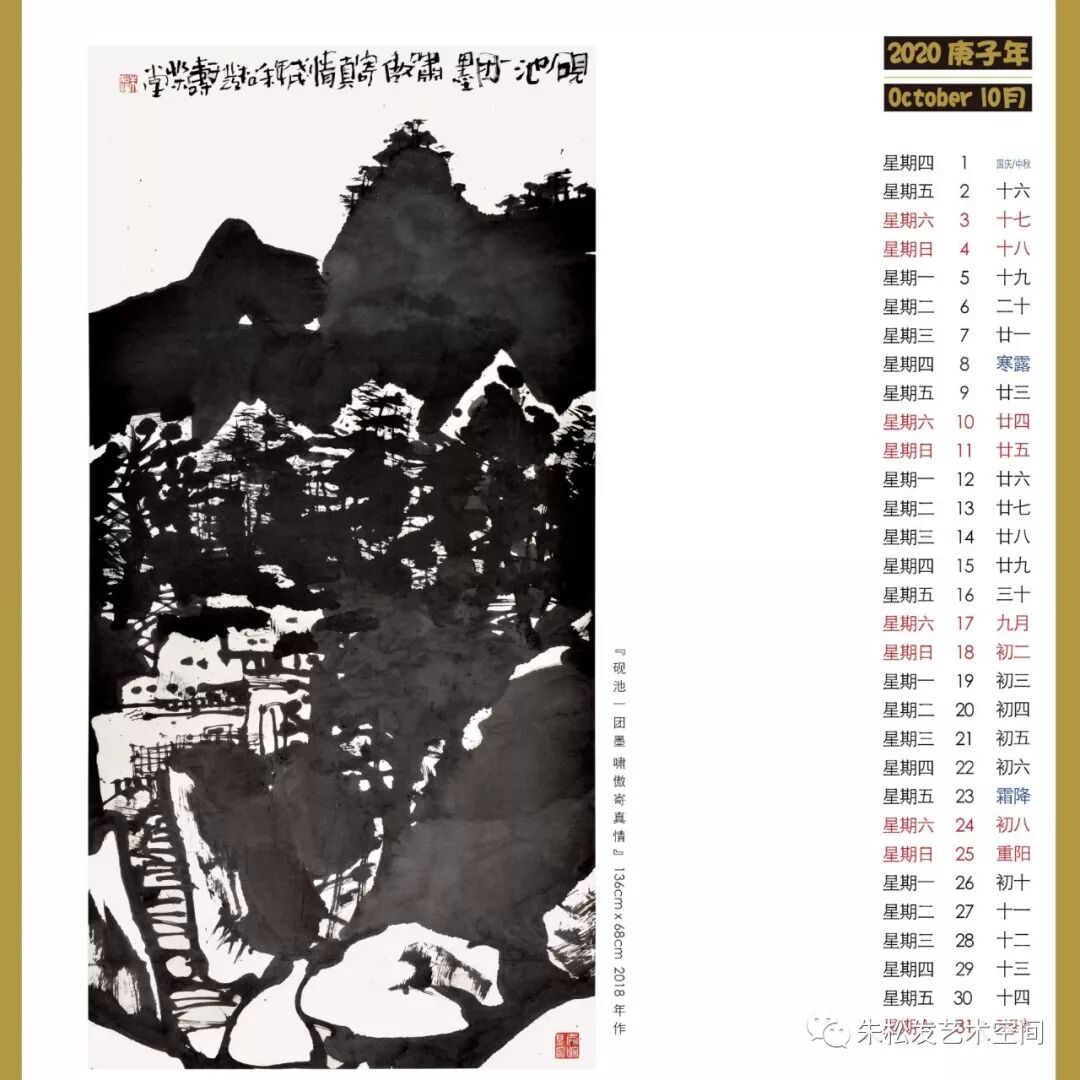 砚池一团墨 啸傲寄真情
2020 庚子年
October 10月
星期四 1 国庆/中秋
星期五 2 十六
星期六 3 十七
星期日 4 十八
星期一 5 十九
星期二 6 二十
星期三 7 廿一
星期四 8 寒露
星期五 9 廿三
星期六 10 廿四
星期日 11 廿五
星期一 12 廿六
星期二 13 廿七
星期三 14 廿八
星期四 15 廿九
星期五 16 三十
星期六 17 九月
星期日 18 初二
星期一 19 初三
星期二 20 初四
星期三 21 初五
星期四 22 初六
星期五 23 霜降
星期六 24 初八
星期日 25 重阳
星期一 26 初十
星期二 27 十一
星期三 28 十二
星期四 29 十三
星期五 30 十四
星期六 31
『砚池一团墨 啸傲寄真情』 136cm x 68cm 2018 年作
朱松发艺术空间